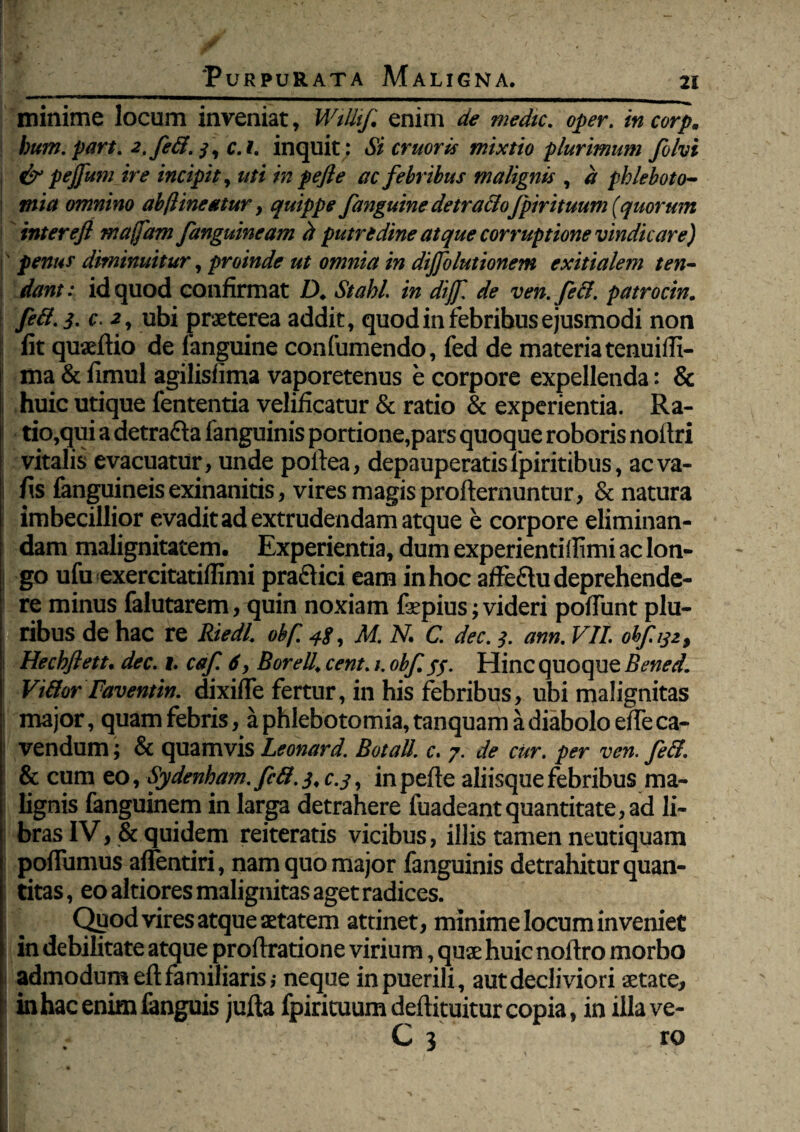 PURPURATA MALIGNA. 21
minime locum inveniat, Willis. enim de medic. oper. in corp.
hum. part. 2. ſect. 3, c. 1. inquit: Si cruoris mixtio plurimum ſolvi
& peſſum ire incipit, uti in peſte ac febribus malignis, à phleboto-
mia omnino abſtineatur, quippe ſanguine detracto ſpirituum (quorum
intereſt maſſam ſanguineam à putredine atque corruptione vindicare)
penus diminuitur, proinde ut omnia in diſſolutionem exitialem ten-
dant: id quod confirmat D. Stahl. in diſſ. de ven. ſect. patrocin.
ſect. 3. c. 2, ubi præterea addit, quod in febribus ejusmodi non
ſit quæſtio de ſanguine conſumendo, ſed de materia tenuiſſi-
ma & ſimul agilisſima vaporetenus è corpore expellenda: &
huic utique ſententia velificatur & ratio & experientia. Ra-
tio, qui a detracta ſanguinis portione, pars quoque roboris noſtri
vitalis evacuatur, unde poſtea, depauperatis ſpiritibus, ac va-
ſis ſanguineis exinanitis, vires magis proſternuntur, & natura
imbecillior evadit ad extrudendam atque è corpore eliminan-
dam malignitatem. Experientia, dum experientiſſimi ac lon-
go uſu exercitatiſſimi practici eam in hoc affectu deprehende-
re minus ſalutarem, quin noxiam ſæpius; videri poſſunt plu-
ribus de hac re Riedl. obſ. 48, M. N. C. dec. 3. ann. VII. obſ. 132,
Hechſtett. dec. 1. caſ. 6, Borell. cent. 1. obſ. 55. Hinc quoque Bened.
Victor Faventin. dixiſſe fertur, in his febribus, ubi malignitas
major, quam febris, à phlebotomia, tanquam à diabolo eſſe ca-
vendum; & quamvis Leonard. Botall. c. 7. de cur. per ven. ſect.
& cum eo, Sydenham. ſect. 3. c. 3, in peſte aliisque febribus ma-
lignis ſanguinem in larga detrahere ſuadeant quantitate, ad li-
bras IV, & quidem reiteratis vicibus, illis tamen neutiquam
poſſumus aſſentiri, nam quo major ſanguinis detrahitur quan-
titas, eo altiores malignitas aget radices.
Quod vires atque ætatem attinet, minime locum inveniet
in debilitate atque proſtratione virium, quæ huic noſtro morbo
admodum eſt familiaris; neque in puerili, aut decliviori ætate,
in hac enim ſanguis juſta ſpirituum deſtituitur copia, in illa ve-
C 3 ro